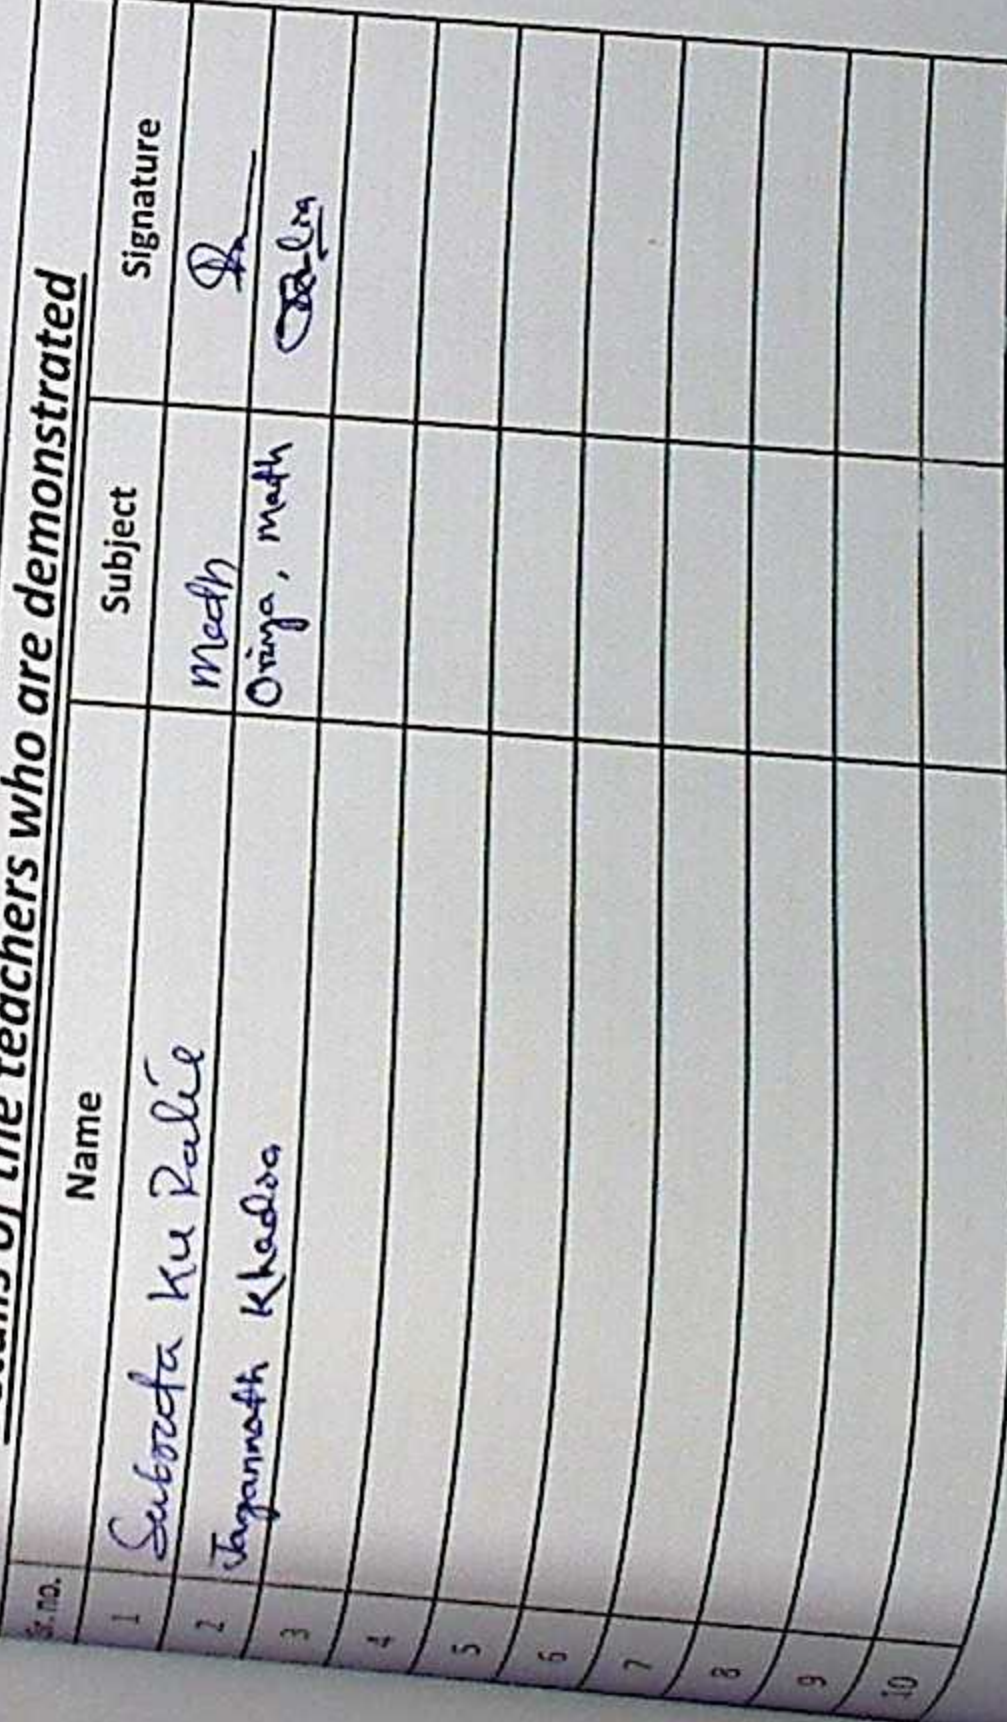 of the teachers who are demonstrated
Sr. no. Name Subject Signature
1 Subrata Ku Math
2 Jagannath Khadia Oriya, Math
3
4
5
6
7
8
9
10